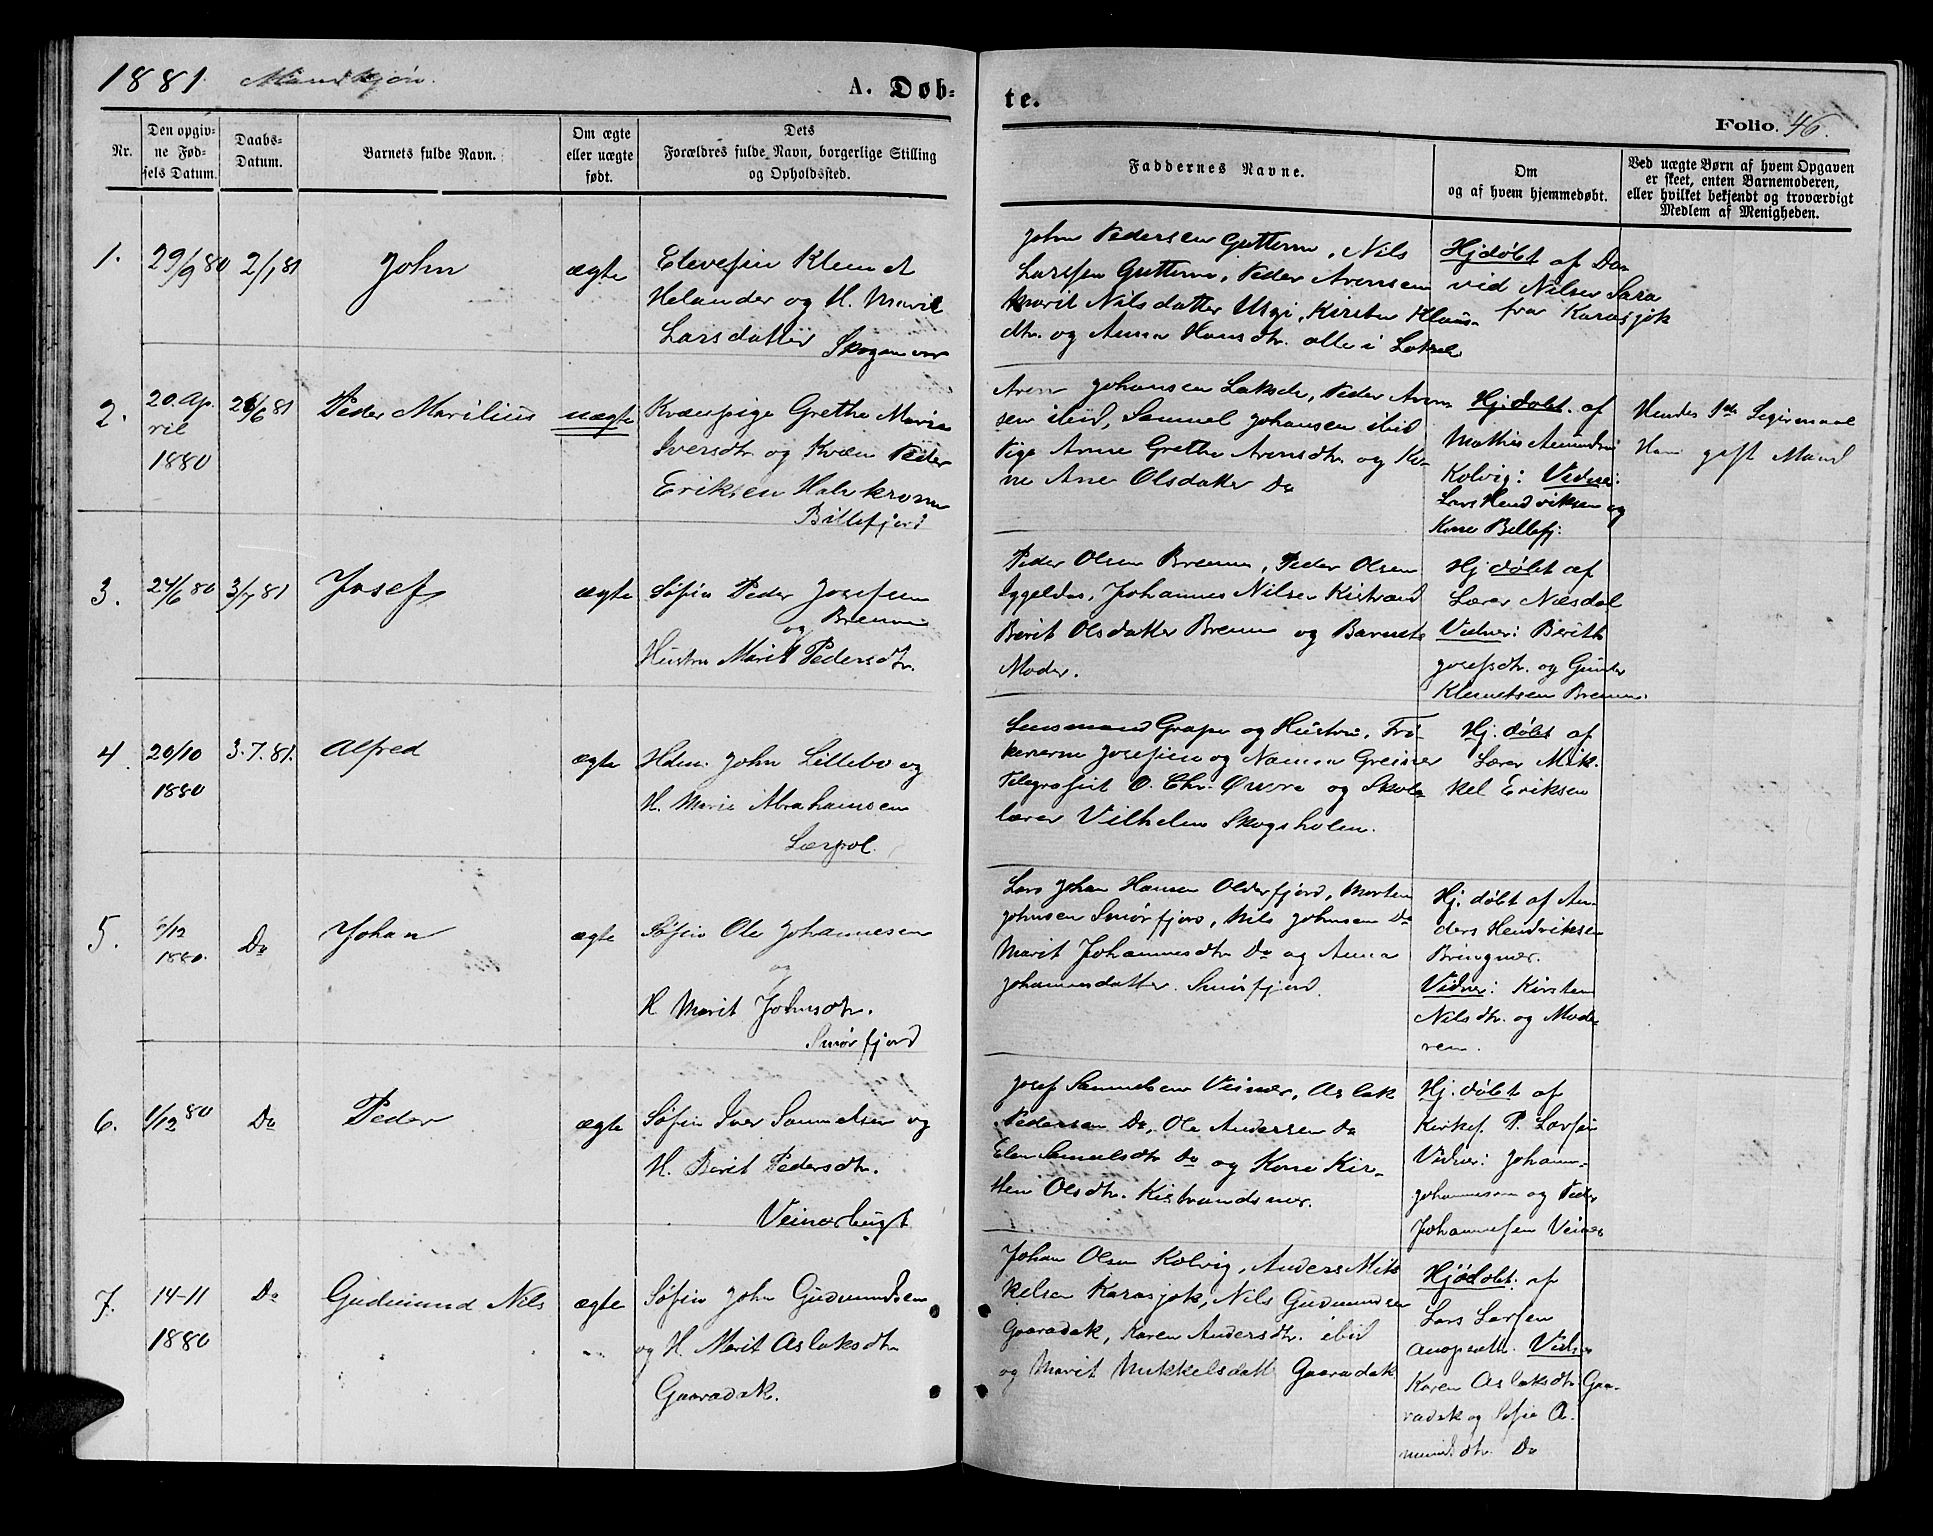 1881. Mandkjøn.
A. Døb-
te.
Folio. 46.
Nr.
Den opgiv-
ne Fød-
sels Datum.
Daabs-
Datum.
Barnets fulde Navn.
Om ægte
eller uægte
født.
Dets
Forældres fulde Navn, borgerlige Stilling
og Opholdssted.
Faddernes Navne.
Om
og af hvem hjemmedøbt.
Ved uægte Børn af hvem Opgaven
er skeet, enten Barnemoderen,
eller hvilket bekjendt og troværdigt
Medlem af Menigheden.
1.
29/9 80
2/1 81
John
ægte
Elvefin Klemet
Helander og H. Marit
Larsdatter Skoganvar
John Pedersen Guttorm, Nils
Larssen Guttorm, Peder Arensen
Marit Nilsdatter Utsi, Kirsten Klaus-
dtr. og Anna Hansdtr. alle i Lakselv
Hjdøbt af Da-
vid Nilsen Sara
fra Karasjok
2.
20. Ap-
ril
1880
26/6 81
Peder Marilius
uægte
Kvænpige Grethe Maria
Iversdtr. og Kvæn Peder
Eriksen Halvkrone
Billefjord
Aren Johansen Lakselv, Peder Aren-
sen ibid, Samuel Johansen ibid
Pige Anne Grethe Arensdtr. og Ko-
ne Ane Olsdatter Do
Hj. døbt. af
Mathis Amundsen
Kolvig: Vidner:
Lars Hendriksen og
Kone Billefj.
Hendes 1ste Leiermaal
Han gift Mand
3.
24/6 80
3/7 81
Josef
ægte
Søfin Peder Josefsen
Brenna
og
Hustru Marit Pedersdtr.
Peder Olsen Brenna, Peder Olsen
Iggeldas, Johannes Nilsen Kistrand
Berit Olsdatter Brenna og Barnets
Moder.
Hj døbt af
Lærer Næsdal
Vidner: Berith
Josefsdtr. og Gunter
Klemetsen Brenna.
4.
20/10
1880
3.7.81.
Alfred
ægte
Hdm. John Lillebo og
H. Marie Abrahamsen
Lærpol.
Lensmand Grape og Hustru, Frø-
kenerne Josefine og Nanna Greiner
Telegrafist O. Chr. Øwre og Skole-
lærer Vilhelm Skogsholm.
Hj. døbt af
Lærer Mik-
kel Eriksen
5.
/12
1880.
Do
Johan
ægte
Søfin Ole Johannesen
og
H. Marit Johnsdtr.
Smørfjord
Lars Johan Hansen Olderfjord, Morten
Johnsen Smørfjord, Nils Johnsen Do
Marit Johannesdtr Do og Anna
Johannesdatter Smørfjord.
Hj. døbt af An-
ders Hendriksen
Bringnes.
Vidner: Kirsten
Nilsdtr. og Mode-
ren.
6.
1/12 80
Do
Peder
ægte
Søfin Iver Samuelsen og
H. Berit Pedersdtr.
Veinesbugt
Josef Samuelsen Veines, Aslak
Pedersen Do, Ole Andersen Do
Elen Samuelsdtr Do og Kone Kir-
sten Olsdtr. Kistrandsnes.
Hj. døbt af
Kirkes. P. Larsen
Vidner: Johann-
Johannesen og Peder
Johannesen Veines
7.
14-11
1880
Do
Gudmund Nils
ægte
Søfin John Gudmundsen
og H. Marit Aslaksdtr
Gaaradak.
Johan Olsen Kolvig, Anders Mik-
kelsen Karasjok, Nils Gudmundsen
Gaaradak, Karen Andersdtr. ibid
og Marit Mikkelsdatt Gaaradak
Hjdøbt: af
Lars Larsen
Vidner
Karen Aslaksdtr. Gaa-
radak og Sofie A-
mundsdtr. Do